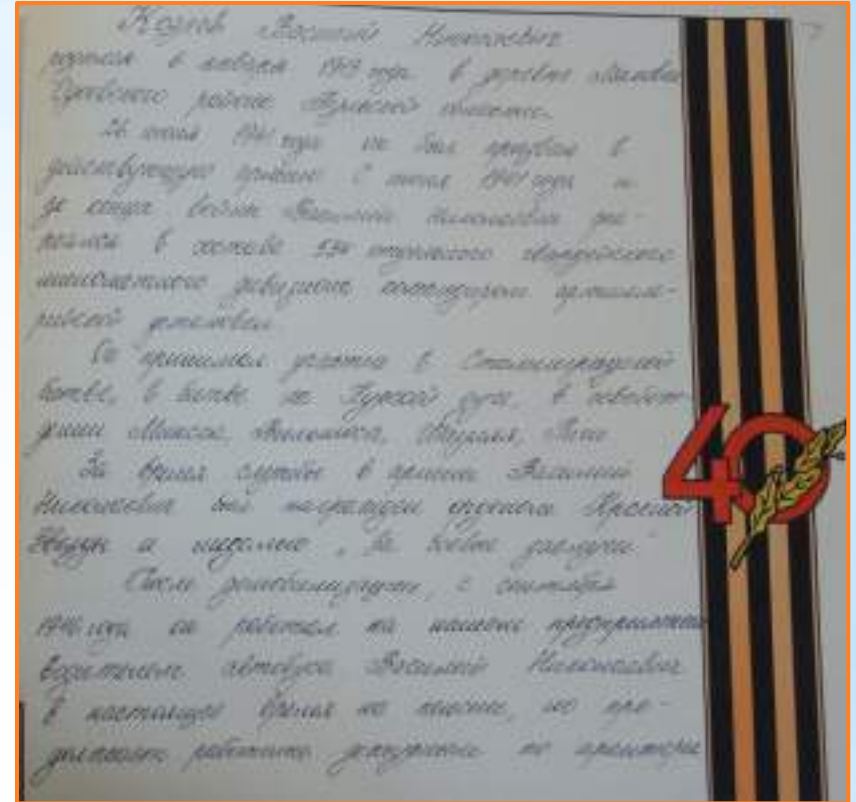 Козлов Василий Николаевич
родился 6 января 1919 года в деревне
района Тульской области.
26 июня 1941 года он был призван в
действующую армию. С июня 1941 года и
до конца войны Василий Николаевич сра-
жался в составе 334 отдельного гвардейского
минометного дивизиона командиром артилле-
рийской установки.
Он принимал участие в Сталинградской
битве, в битве на Курской дуге, в освобож-
дении Минска, Вильнюса, Риги.
За время службы в армии Василий
Николаевич был награжден орденом Красной
Звезды и медалью „За боевые заслуги"
После демобилизации, с сентября
1946 года он работал на нашем предприятии
водителем автобуса. Василий Николаевич
в настоящее время на пенсии, но про-
должает работать дежурным по
40